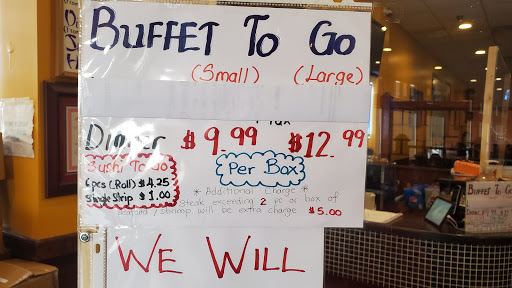 BUFFET TO GO
(Small) (Large)
Dinner $9.99 $12.99
Per Box
Sushi To Go
6 pcs (Roll) $4.25
Single Strip $1.00
* Additional Charge *
Steak exceeding 2 pc or box of
seafood / shrimp will be extra charge $5.00
WE WILL
BUFFET TO GO